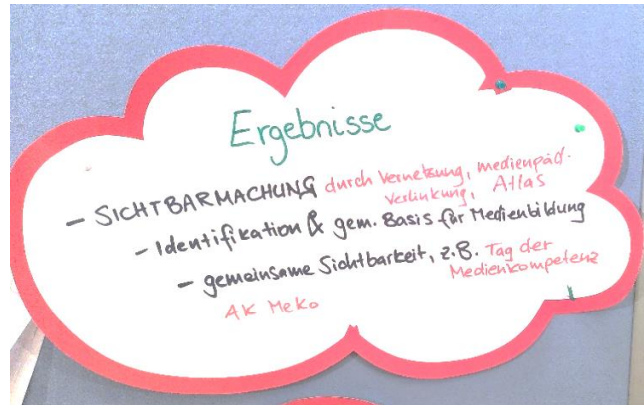 Ergebnisse
– SICHTBARMACHUNG durch Vernetzung, medienpäd.
Verlinkung, Atlas
– Identifikation & gem. Basis für Medienbildung
– gemeinsame Sichtbarkeit, z.B. Tag der
Medienkompetenz
AK MeKo